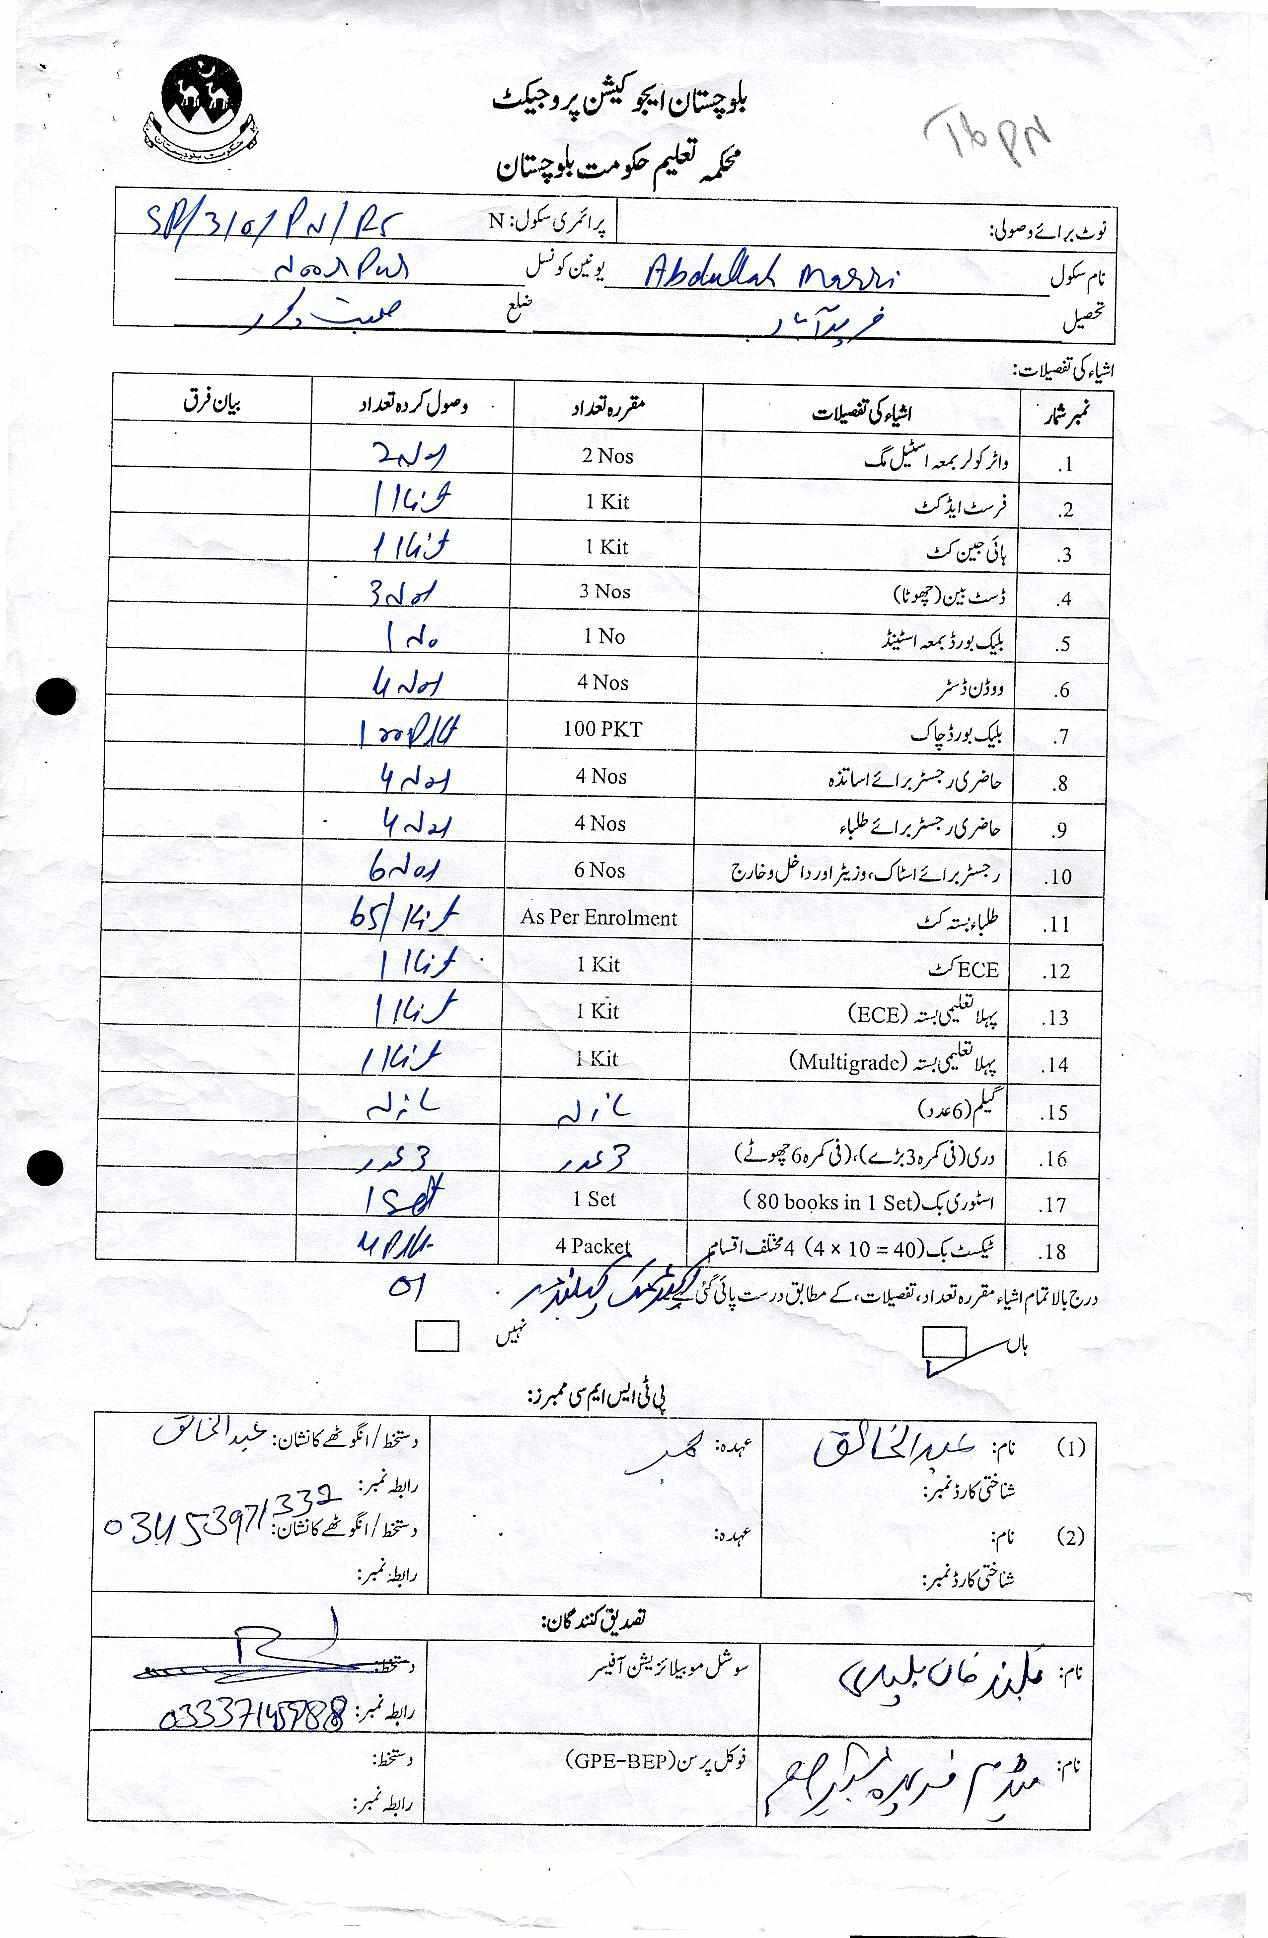 حکومت بلوچستان
بلوچستان ایجوکیشن پروجیکٹ
محکمہ تعلیم حکومت بلوچستان
نوٹ برائے وصولی: پرائمری سکول: N
نام سکول Abdullah Marri یونین کونسل
تحصیل فریدآباد ضلع صحبت پور
اشیاء کی تفصیلات:
نمبر شمار اشیاء کی تفصیلات مقررہ تعداد وصول کردہ تعداد بیان فرق
1. واٹر کولر بمعہ اسٹیل مگ 2 Nos 2 Nos
2. فرسٹ ایڈ کٹ 1 Kit 1 Kit
3. ہائی جین کٹ 1 Kit 1 Kit
4. ڈسٹ بین (چھوٹا) 3 Nos 3 Nos
5. بلیک بورڈ بمعہ اسٹینڈ 1 No 1 No
6. ووڈن ڈسٹر 4 Nos 4 Nos
7. بلیک بورڈ چاک 100 PKT 100 Pkt
8. حاضری رجسٹر برائے اساتذہ 4 Nos 4 Nos
9. حاضری رجسٹر برائے طلباء 4 Nos 4 Nos
10. رجسٹر برائے اسٹاک، وزیٹر اور داخل و خارج 6 Nos 6 Nos
11. طلباء بستہ کٹ As Per Enrolment 65/ Kit
12. ECE کٹ 1 Kit 1 Kit
13. پہلا تعلیمی بستہ (ECE) 1 Kit 1 Kit
14. پہلا تعلیمی بستہ (Multigrade) 1 Kit 1 Kit
15. گیلم (6 عدد)
16. دری (فی کمرہ 3 بڑے)، (فی کمرہ 6 چھوٹے) 3 عدد 3 عدد
17. اسٹوری بک (80 books in 1 Set) 1 Set 1 Set
18. ٹیکسٹ بک (4 × 10 = 40) 4 مختلف اقسام 4 Packet 4 Pkt
درج بالا تمام اشیاء مقررہ تعداد، تفصیلات، کے مطابق درست پائی گئی ہے 01
ہاں نہیں
پی ٹی ایس ایم سی ممبرز:
(1) نام: عبدالخالق عہدہ: ممبر دستخط/انگوٹھے کا نشان: عبدالخالق
شناختی کارڈ نمبر: رابطہ نمبر: 03453971332
(2) نام: عہدہ: دستخط/انگوٹھے کا نشان:
شناختی کارڈ نمبر: رابطہ نمبر:
تصدیق کنندگان:
نام: سوشل موبیلائزیشن آفیسر دستخط:
رابطہ نمبر:
نام: میڈم فوکل پرسن (GPE-BEP) دستخط:
رابطہ نمبر: